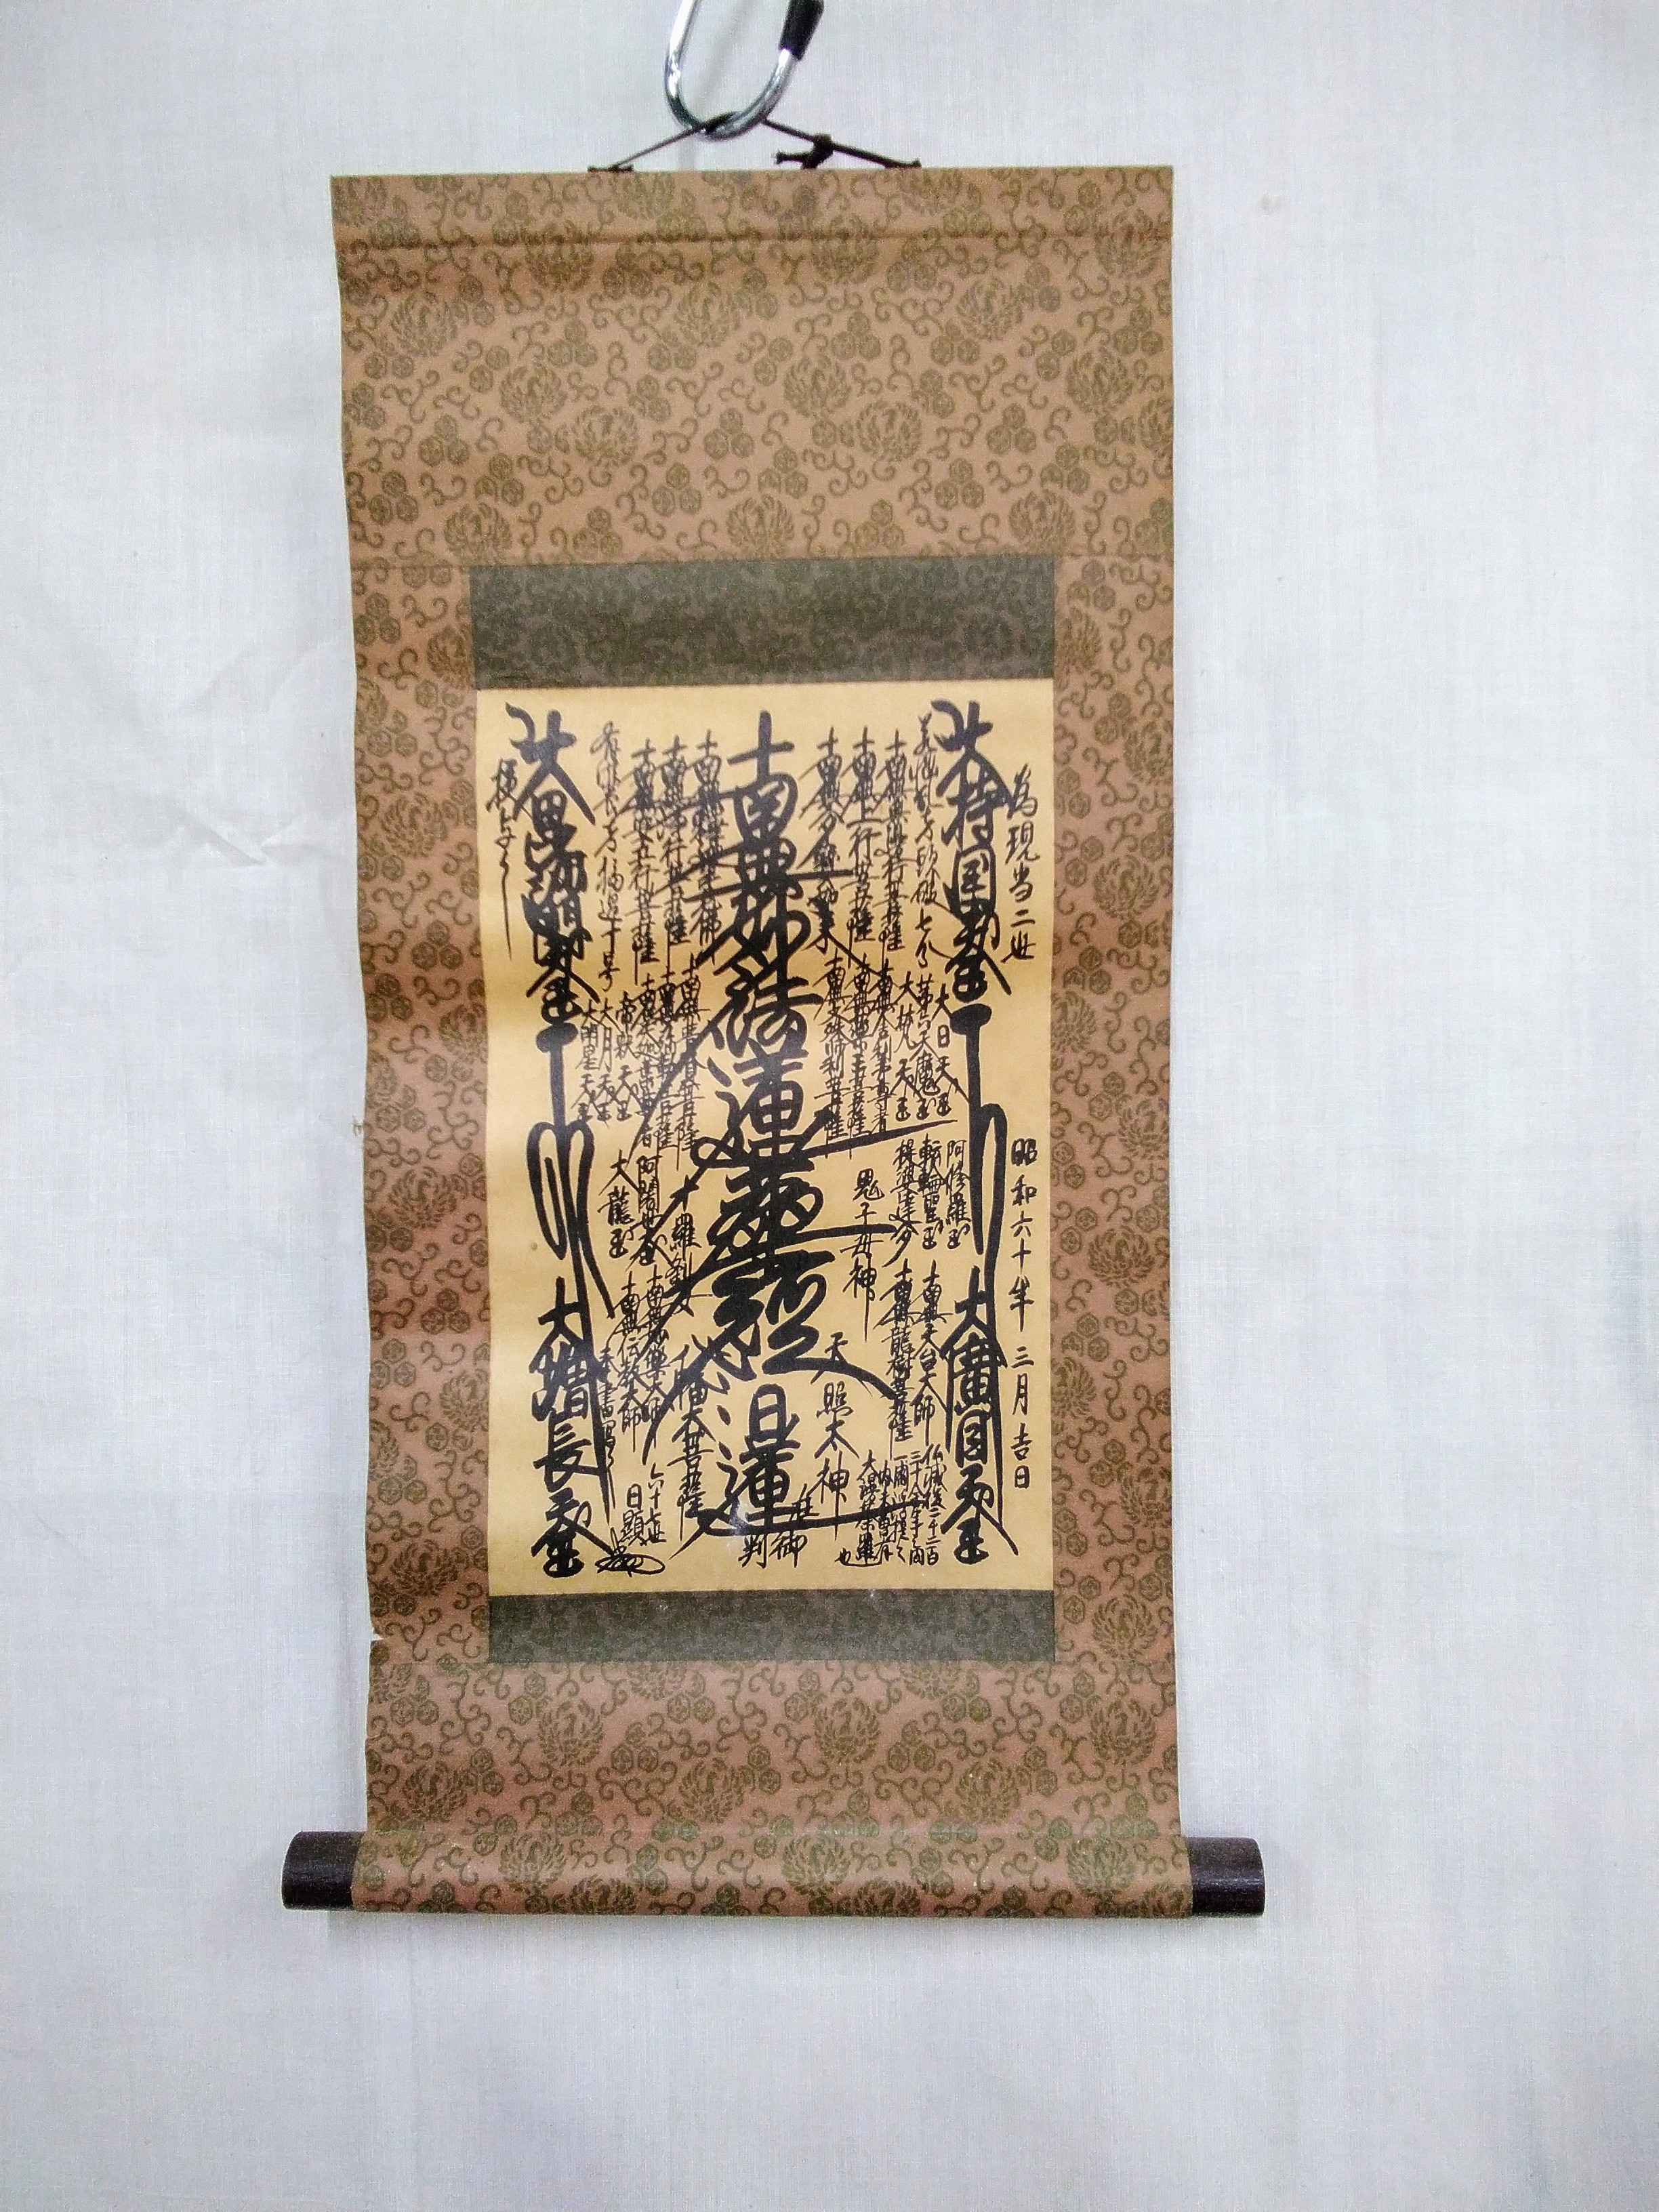 為現当二世
昭和六十年 三月吉日
大持国天王
大廣目天王
大日天王
第六天魔王
大梵天王
阿修羅王
転輪聖王
提婆達多
南無天台大師
南無龍樹菩薩
仏滅後二千二百
三十余年之間
一閻浮提之
内未曾有
大漫荼羅
也
南無無辺行菩薩
南無上行菩薩
南無多宝如来
南無舎利弗尊者
南無薬王菩薩
南無文殊師利菩薩
鬼子母神
天照太神
南無妙法蓮華経
日蓮
在御
判
南無釈迦牟尼佛
南無浄行菩薩
南無安立行菩薩
有供養者福過十号
南無普賢菩薩
南無弥勒菩薩
南無大迦葉尊者
帝釈天王
大月天王
大明星天王
十羅刹女
阿闍世王
大龍王
八幡大菩薩
南無妙楽大師
南無伝教大師
奉書写之
六十七世
日顕
大毘沙門天王
大増長天王
授与之